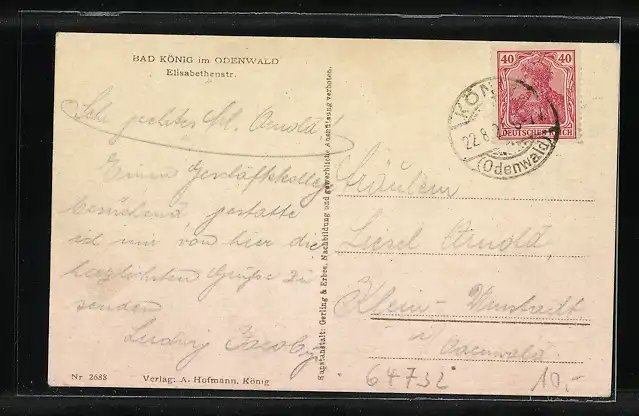 BAD KÖNIG im ODENWALD
Elisabethenstr.
Sehr geehrtes Frl. Arnold!
Einen Geschäftskollegen
besuchend gestatte
ich mir von hier die
herzlichsten Grüße zu
senden
Ludwig
Nr. 2688 Verlag: A. Hofmann, König
Kunstanstalt: Gerling & Erbes. Nachbildung und gewerbliche Ausnützung verboten.
40 40
DEUTSCHES REICH
KÖN
22.8.2
(Odenwald)
Fräulein
Liesel Arnold,
Klein-Umstadt
i
Odenwald.
64732 10,-